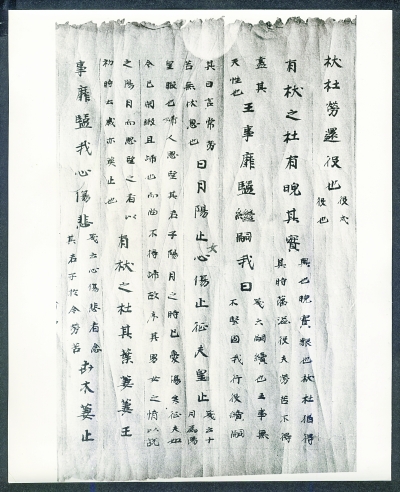 杕杜勞還役也役戍役也
有杕之杜有睆其實興也睆實貌也杕杜猶得其時蕃滋役夫勞苦不得
盡其天性也王事靡盬繼嗣我日箋云嗣續也王事無不堅固我行役續嗣
其日言常勞苦無休息也日月陽止女心傷止征夫皇止箋云十月為陽
皇暇也婦人思望其君子陽月之時已憂傷矣征夫如今已閒暇且歸也而尚不得歸故序其男女之情以說
之陽月而思望之者以初時云歲亦莫止也有杕之杜其葉萋萋王
事靡盬我心傷悲箋云心傷悲者念其君子於今勞苦卉木萋止